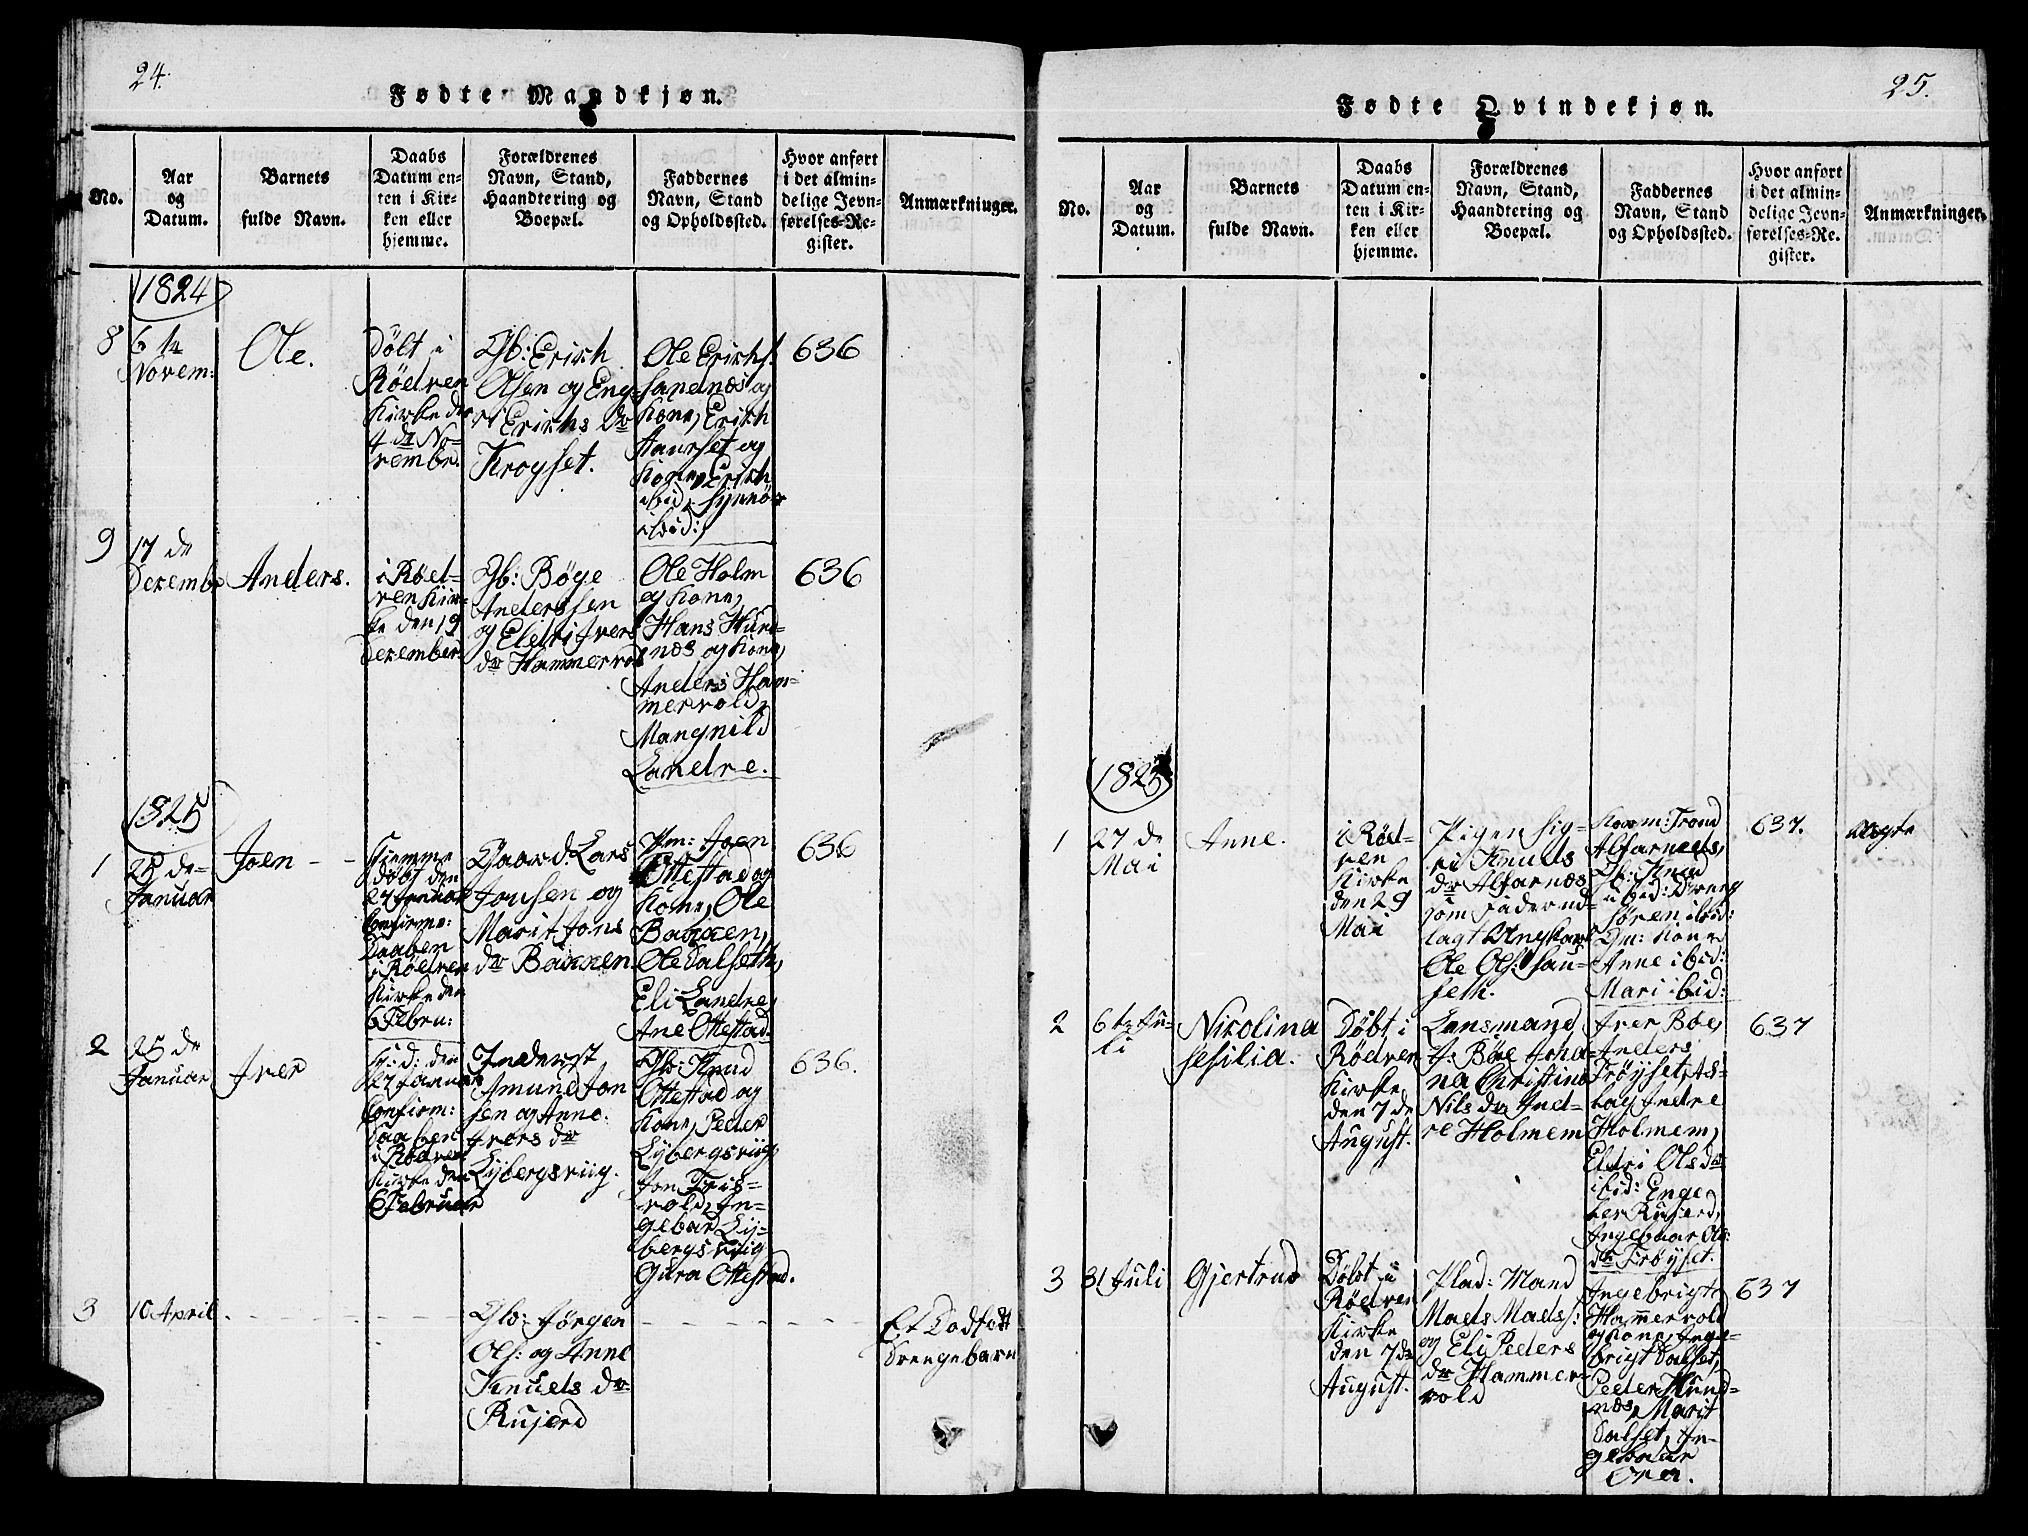 24.
Fødte Mandkjøn.
No.
Aar
og
Datum.
Barnets
fulde Navn.
Daabs
Datum en-
ten i Kir-
ken eller
hjemme.
Forældrenes
Navn, Stand,
Haandtering og
Boepæl.
Faddernes
Navn, Stand
og Opholdssted.
Hvor anført
i det almin-
delige Jevn-
førelses-Re-
gister.
Anmærkninger.
1824
8
6te
Novem:
Ole.
Døbt i
Rödven
Kirke den
4de No-
vembr.
Gb: Erich
Olsen og Eng-
Erichs Dr
Kroyset.
Ole Erichs.
Sandnæs og
Kone, Erich
Aurset og
Kone, Erich
ibid, Synnöv
ibid:
636
9
17 de
Decembr
Anders.
i Röd-
ven Kir-
ke den 19
December
Gb: Böge
Anderssen
og Eldri Ivers
dr Hammervol
Ole Holm
og Kone,
Hans Hund-
næs og Kone,
Anders Ham-
mervold,
Mangnild
Landre.
636
1825
1
25 de
Januar
Joen
Hiemme
døbt den
27 Januar
Confirme:
Daaben
i Rödven
Kirke den
6 Febru:
Gaard. Lars
Jonsen og
Marit Jons
dr Bakken
Joen
Ottestad og
Kone, Ole
Bakken,
Ole Dalseth,
Eli Landre,
Ane Ottestad.
636
2
25 de
Januar
Iver
H: d: den
27 Januar
Confirm:
Daaben
i Rödven
Kirke den
6 Februar
Inderst
Amund Jon
sen og Anne
Ivers dr
Lybergsviig.
Gb: Knud
Ottestad og
Kone, Peder
Lybergsviig,
Jon Fris-
vold, In-
gebor Ly-
bergsviig
Gura Ottestad.
636.
3
10 April.
Gb: Jörgen
Ols: og Anne
Knuds dr
Rujerd
Et Dødfødt
Drengebarn
25.
Fødte Qvindekjøn.
No.
Aar
og
Datum.
Barnets
fulde Navn.
Daabs
Datum en-
ten i Kir-
ken eller
hjemme.
Forældrenes
Navn, Stand,
Haandtering og
Boepæl.
Faddernes
Navn, Stand
og Opholdssted.
Hvor anført
i det almin-
delige Jevn-
førelses-Re-
gister.
Anmærkninger.
1825
1
27 de
Mai
Anne.
i Röd-
ven
Kirke
den 29
Mai
Pigen Sig-
ri Knuds
dr Alfarnæs
som Fader ud-
lagt Ungkarl
Ole Ols:
seth.
Trond
Alfarnæs,
Gb: Knud
ibid: Dreng
Sören ibid:
Gm: Kone
Anne ibid:
Mari ibid:
637.
Uægte
2
6te Ju-
li
Nicolina
Sesilia.
Döbt i
Rödven
Kirke
den 7 de
August.
Lansmand
J: Böe Joha-
na Christina
Nils dr Ind-
re Holmem
Iver Böe,
Anders
Fröyset, As-
lag Indre
Holmem,
Eldri Ols dr
ibid: Enge
ber Rujerd,
Ingebaar Ols
dr Fröyset.
637
3
31 Juli
Gjertrud
Döbt i
Rödven
Kirke
den 7 de
August.
Plad: Mand
Mads Mads:
og Eli Peders
dr Hammer-
vold
Ingebrigt
Hammervold
og Kone, Inge-
brigt Dalset,
Peder Hund-
næs, Marit
Dalset, In-
gebaar
637